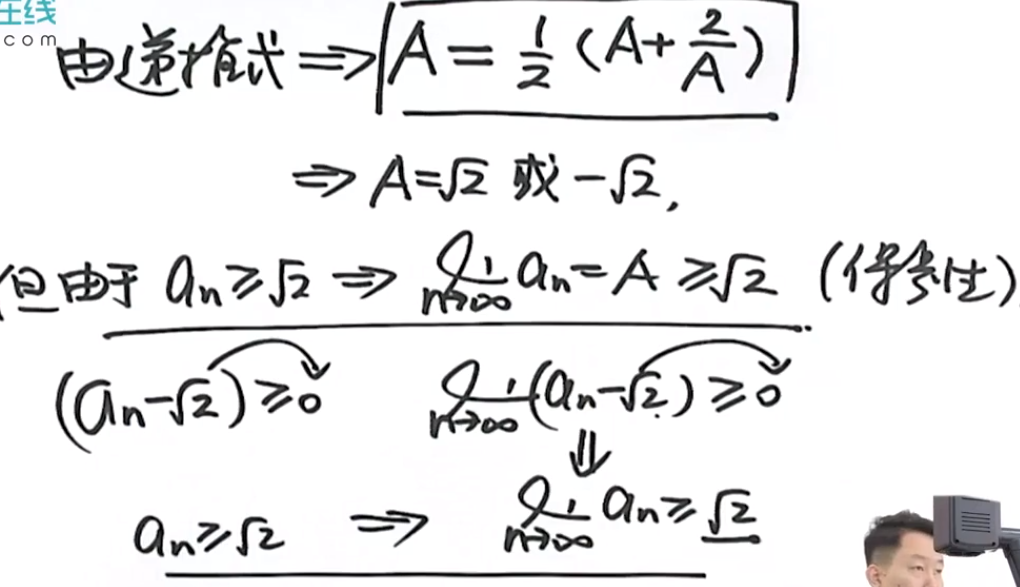 在线
com
由递推式 ⇒ A = 1/2 (A + 2/A)
⇒ A = √2 或 -√2,
但由于 aₙ ≥ √2 ⇒ lim n→∞ aₙ = A ≥ √2 (保号性)
(aₙ - √2) ≥ 0 lim n→∞ (aₙ - √2) ≥ 0
⇓
aₙ ≥ √2 ⇒ lim n→∞ aₙ ≥ √2